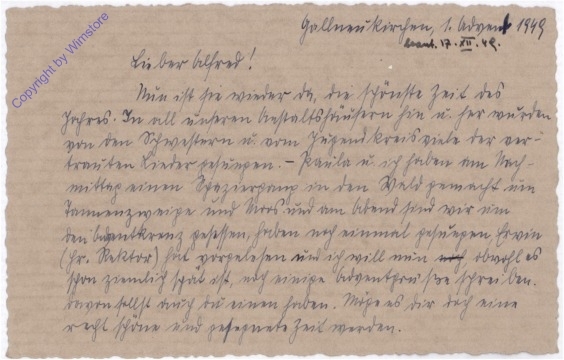 Gallneukirchen, 1. Advent 1949
beant. 17. XII. 49.
Lieber Alfred!
Nun ist sie wieder da, die schönste Zeit des
Jahres. In all unseren Anstaltshäusern hin u. her wurden
von den Schwestern u. vom Jugendkreis viele der ver-
trauten Lieder gesungen. – Paula u. ich haben am Nach-
mittag einen Spaziergang in den Wald gemacht um
Tannenzweige und Moos und am Abend sind wir um
den Adventkranz gesessen, haben noch einmal gesungen Erwin
(Hr. Rektor) hat vorgelesen und ich will nun obwohl es
schon ziemlich spät ist, noch einige Adventgrüße schreiben.
Davon sollst auch du einen haben. Möge es dir doch eine
recht schöne und gesegnete Zeit werden.
Copyright by Wimstore